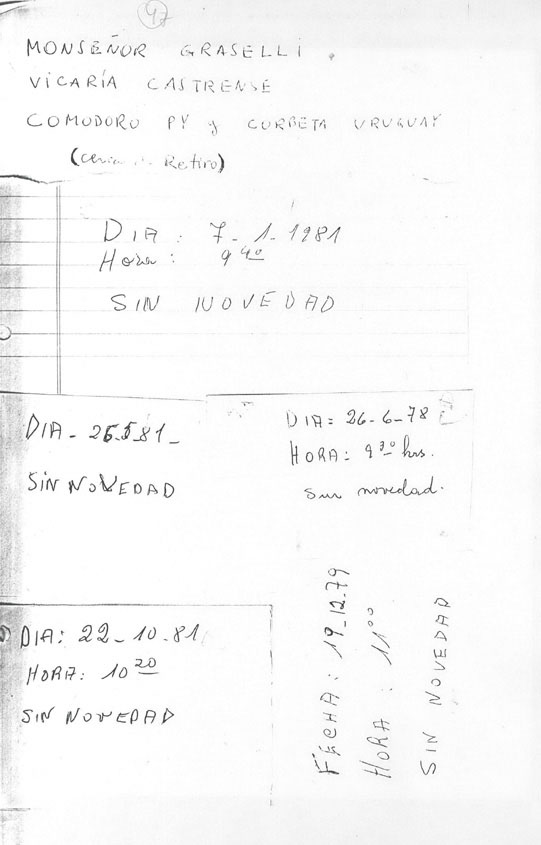 47
MONSEÑOR GRASELLI.
VICARÍA CASTRENSE
COMODORO PY y CORBETA URUGUAY
(cerca de Retiro)
DIA: 7-1-1981
Hora: 9 40
SIN NOVEDAD
DIA- 26.5.81-
SIN NOVEDAD
DIA: 26-6-78
HORA: 9 30 hrs.
Sin novedad.
DIA: 22-10-81
HORA: 10 20
SIN NOVEDAD
FECHA: 19-12-79
HORA: 11 00
SIN NOVEDAD